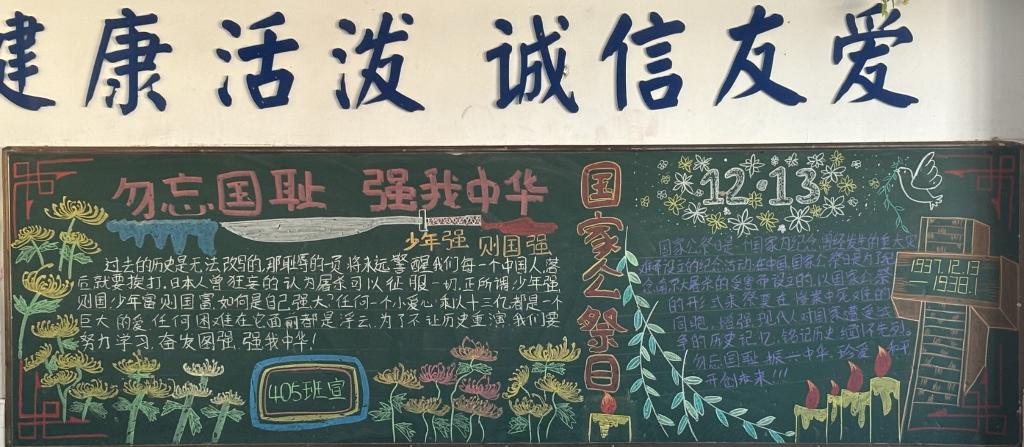 健康活泼 诚信友爱
勿忘国耻 强我中华
少年强 则国强
过去的历史是无法改写的,那耻辱的一页将永远警醒我们每一个中国人,落
后就要挨打,日本人曾狂妄的认为屠杀可以征服一切,正所谓少年强
则国,少年富则国富,如何是自己强大?任何一个小爱心,乘以十三亿,都是一个
巨大的爱,任何困难在它面前都是浮云,为了不让历史重演,我们要
努力学习,奋发图强,强我中华!
405班宣
国家公祭日
12·13
国家公祭日是一个国家为纪念曾经发生的重大灾
难而设立的纪念活动,在中国,国家公祭日是为了纪
念南京大屠杀的受害者设立的,以国家公祭
的形式来祭奠在惨案中死难的
同胞,增强现代人对国家遭受战
争的历史记忆,铭记历史
勿忘国耻,振兴中华,珍爱和平
开创未来!!!
1937.12.13
—1938.1